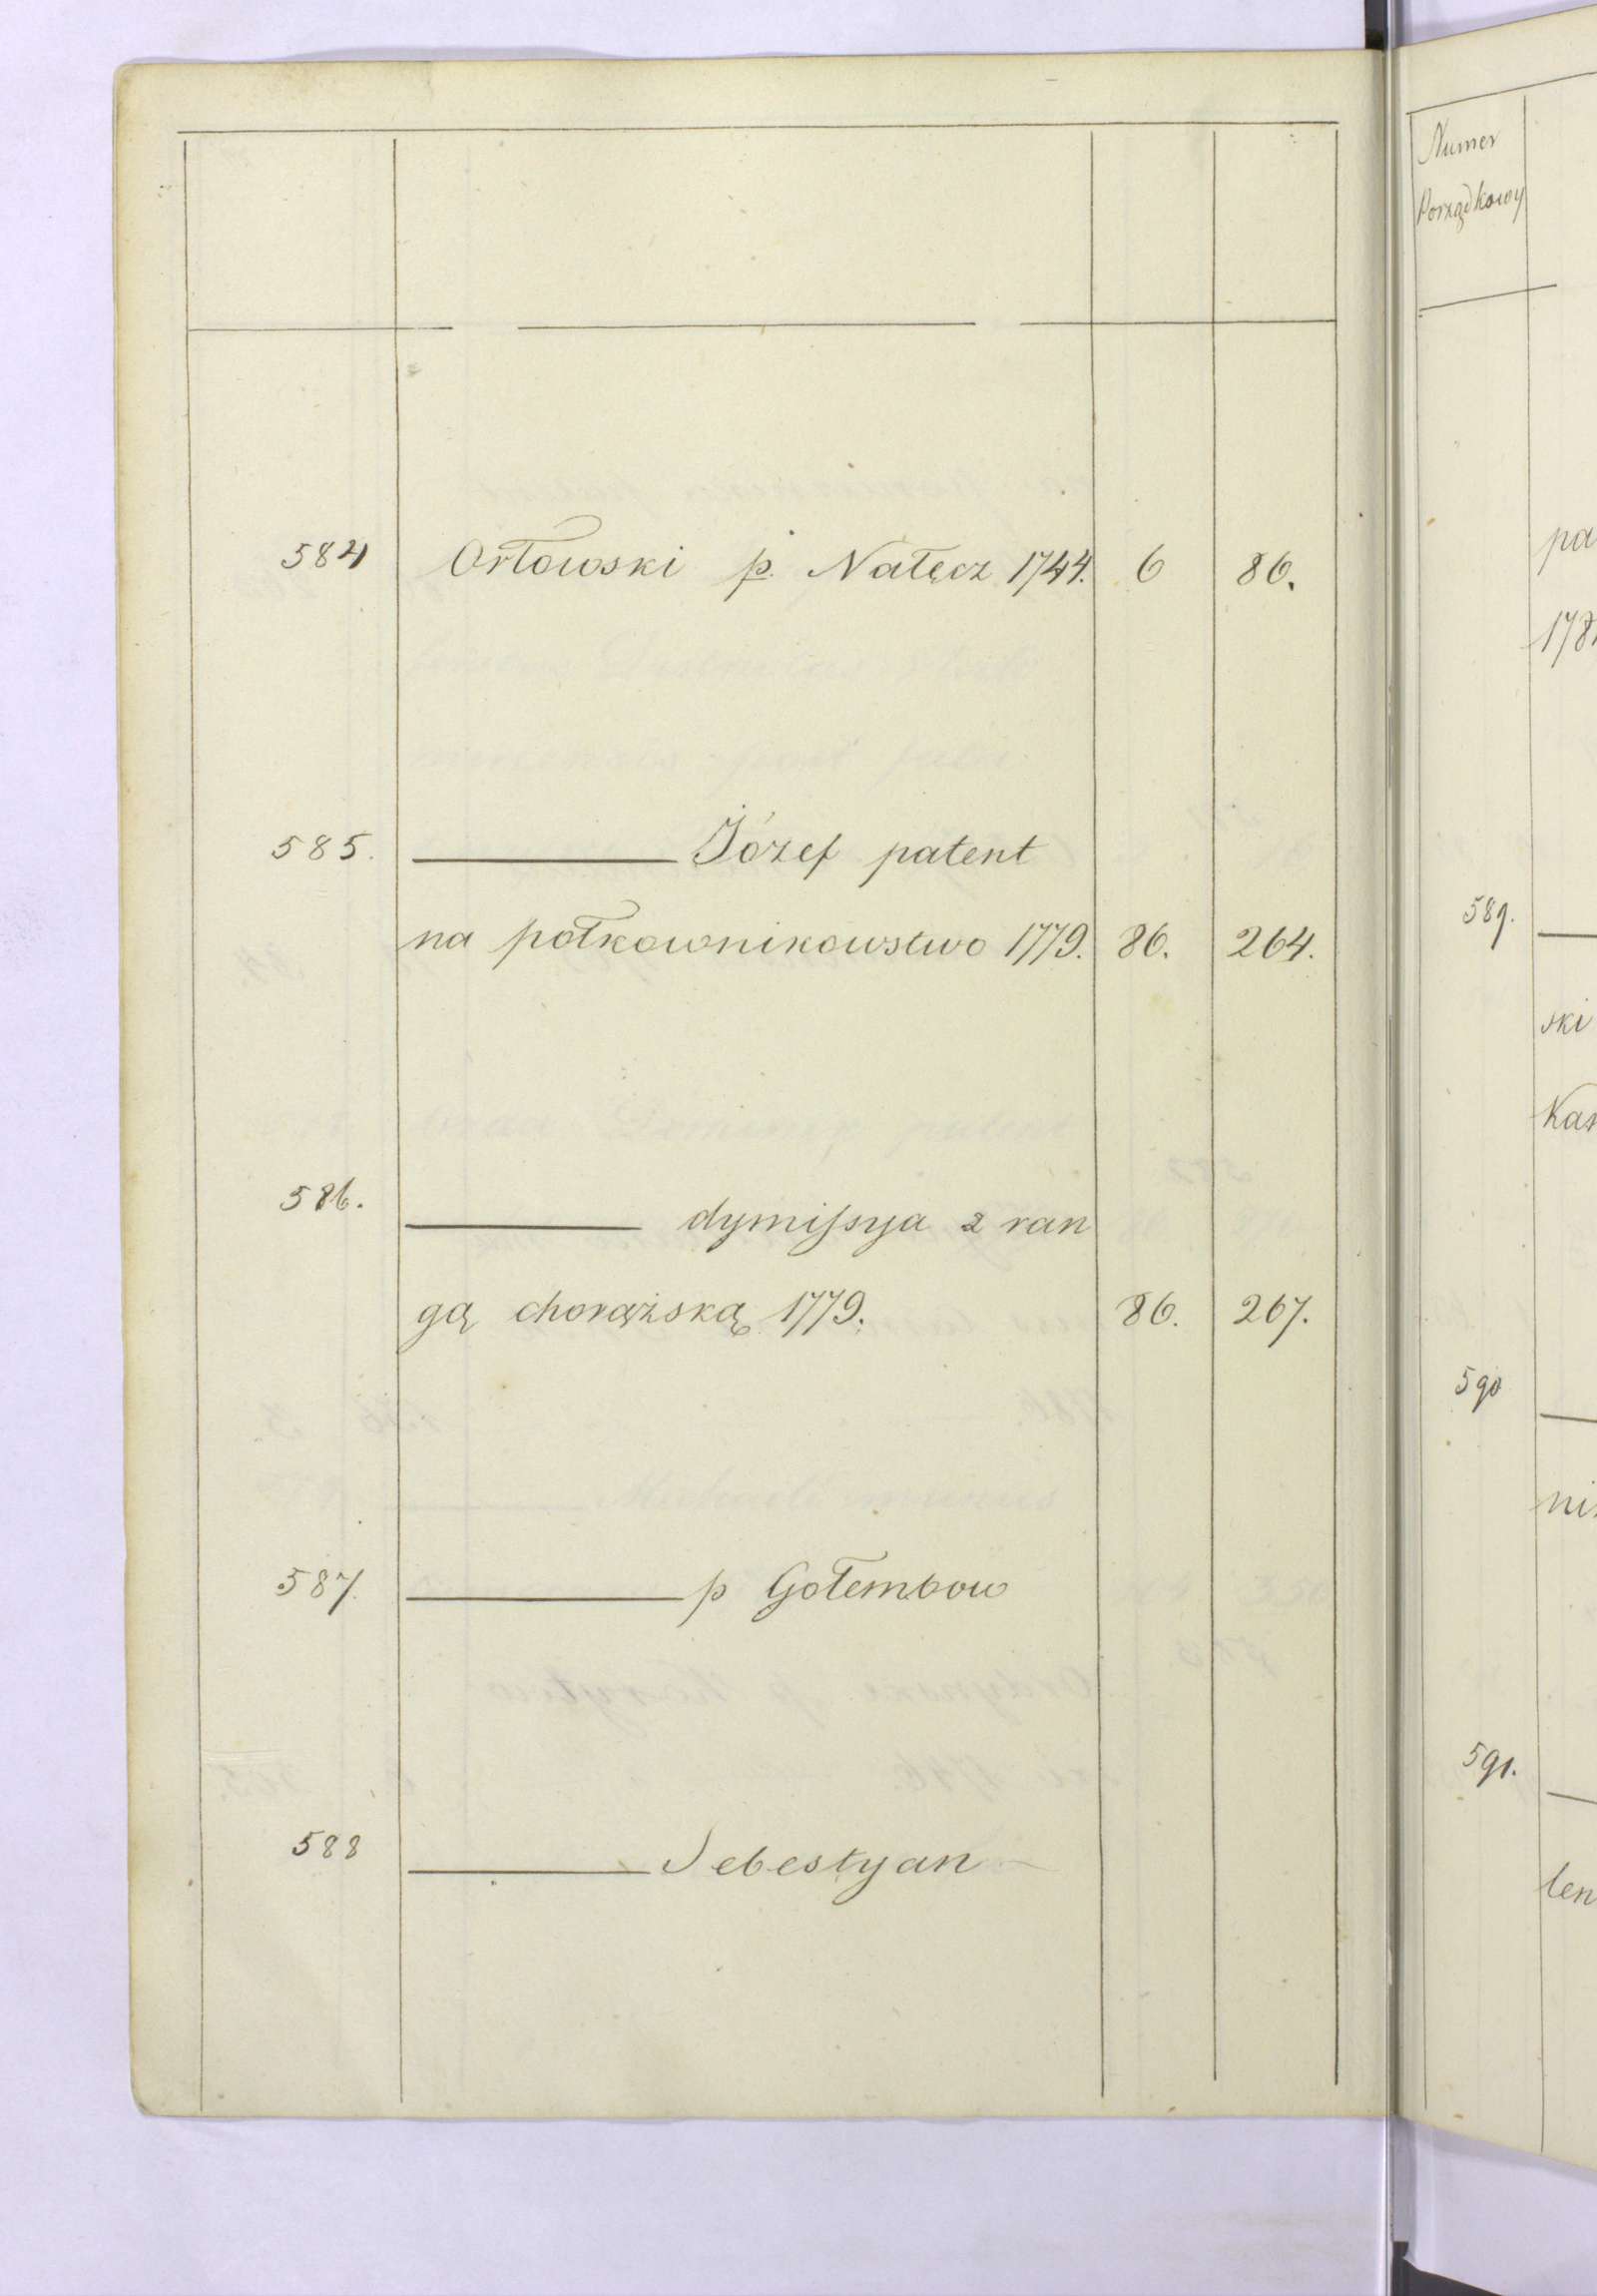 584 Orłowski p. Nałęcz 1744. 6 86.
585. ——— Józef patent
na połkownikowstwo 1779. 86. 264.
586. ——— dymissya z ran
gą chorążską 1779. 86. 267.
587. ——— p Gołembow
588 ——— Sebestyan
Numer
Porządkowy
pa
178
589.
ski
Kan
590
ni
591.
ten